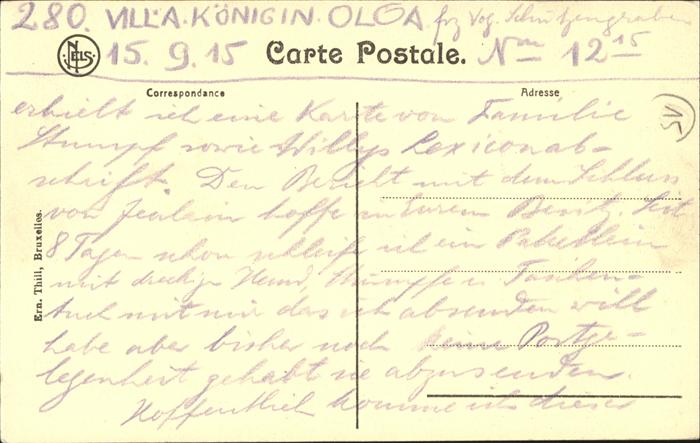 280. VILLA. KÖNIGIN. OLGA frz. Vog. Schützengraben
NELS 15. 9. 15 Carte Postale. Nm 12 15
Correspondance Adresse
15
erhielt ich eine Karte von Familie
Stumpf sowie Willys Lexiconab-
schrift. Den Bericht mit dem Schluss
von hoffe in Eurem Besitz. Seit
8 Tagen schon schleife ich ein Paketlein
mit dreckigem Hemd, Strümpfe u. Taschen-
tuch mit mir das ich absenden will
habe aber bisher noch keine Postge-
legenheit gehabt sie abzusenden.
Hoffentlich komme ich dieses
Ern. Thill, Bruxelles.